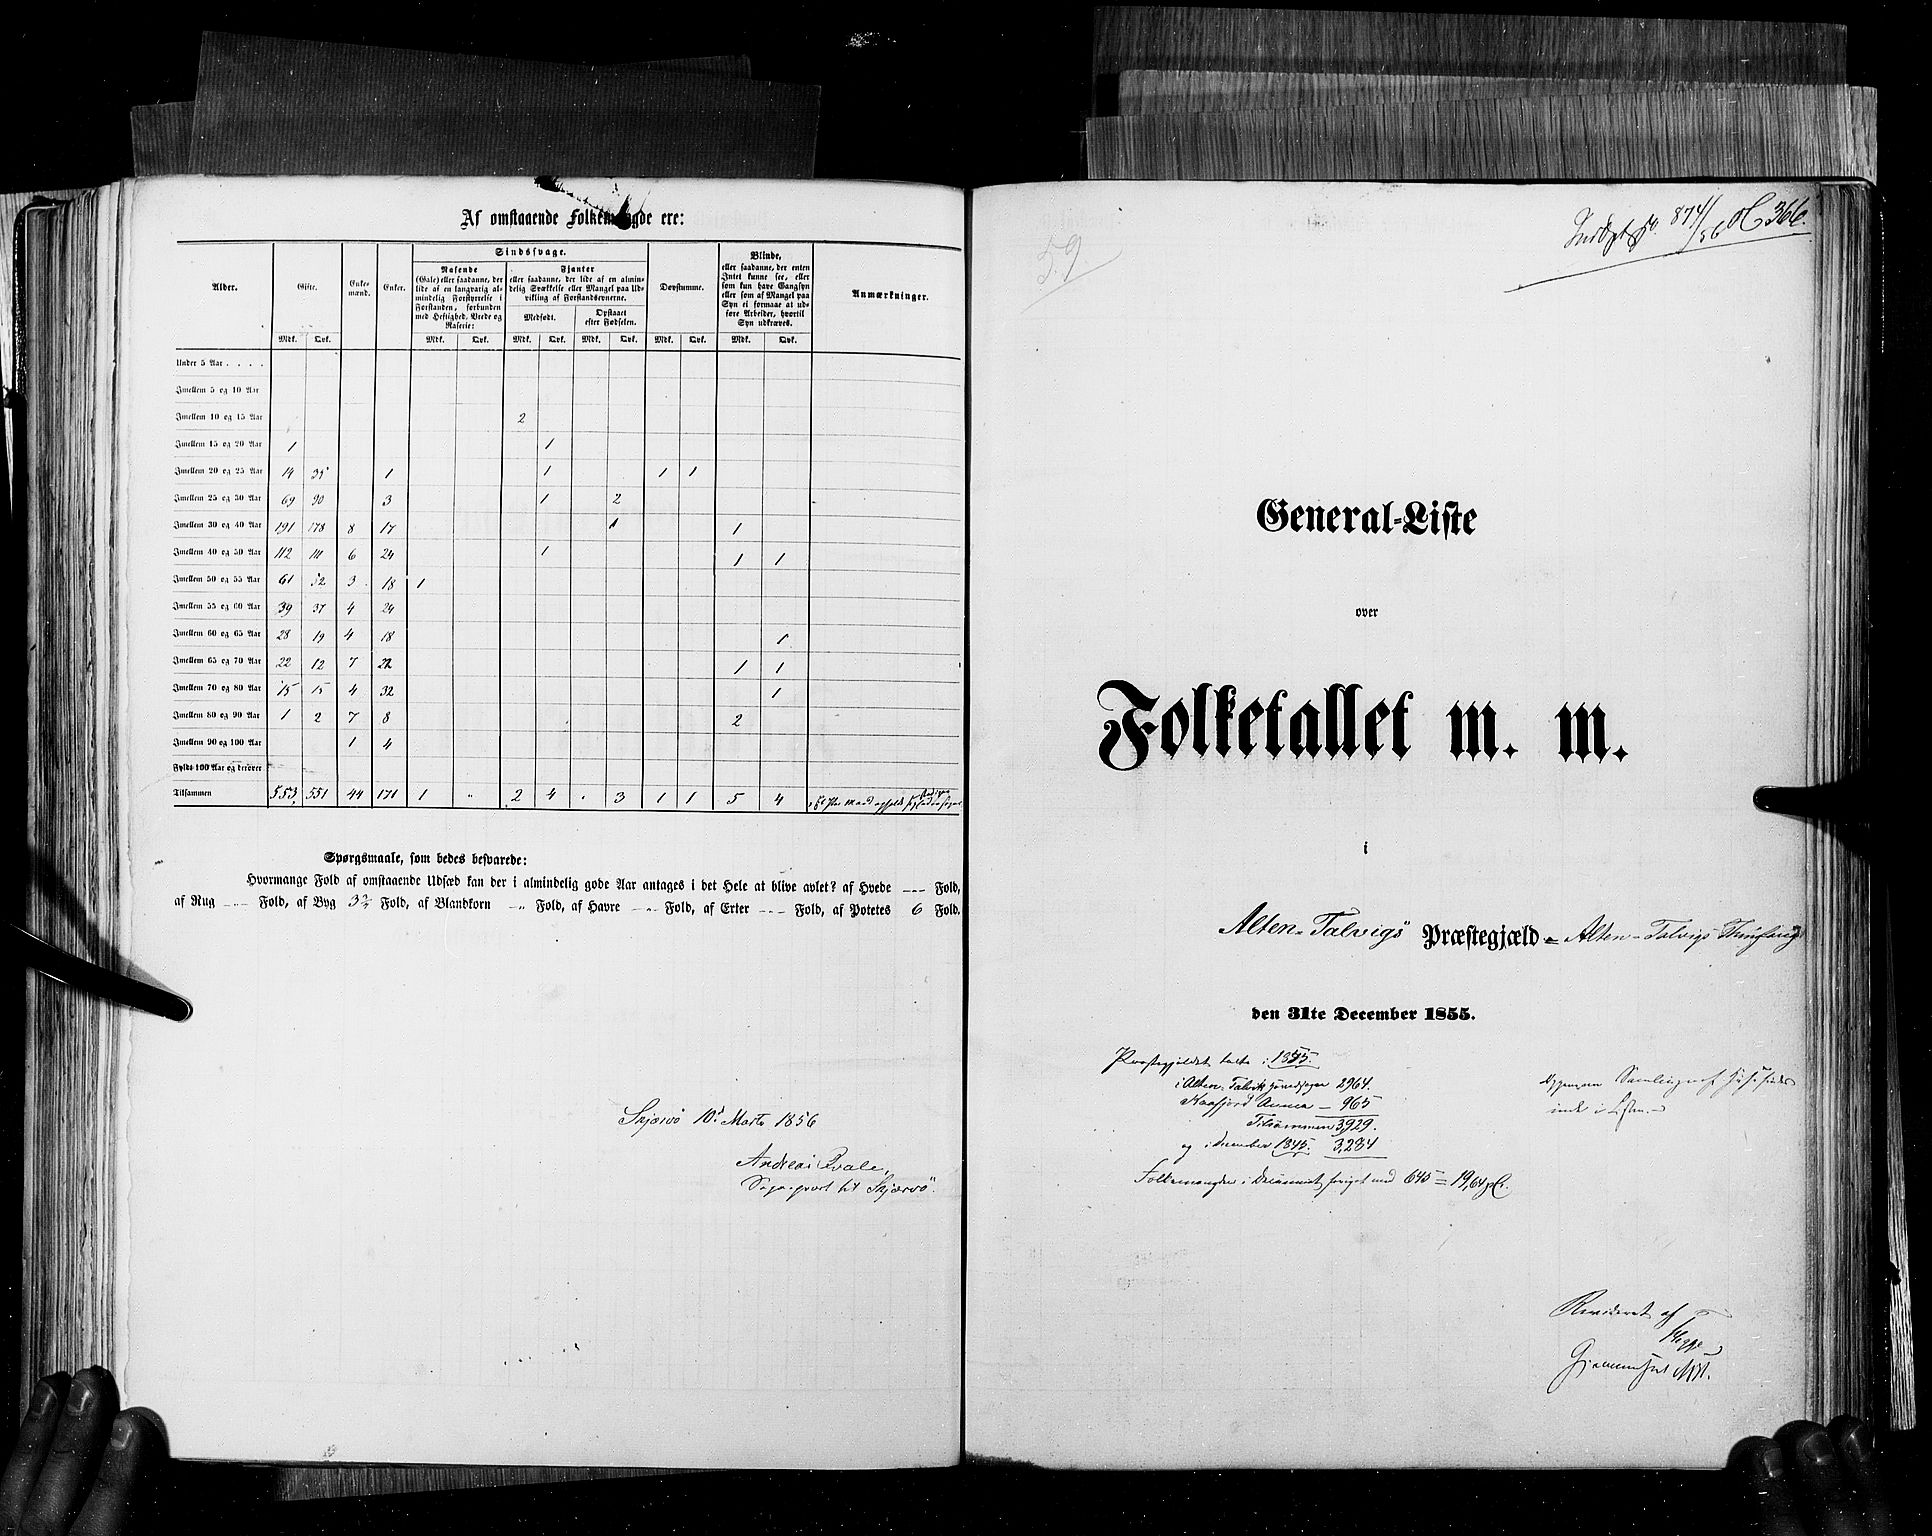 Af omstaaende Folkemængde ere:
Alder. Gifte. Enke-mænd. Enker. Sindssvage. Døvstumme. Blinde, eller saadanne, der enten Intet kunne see, eller som kun have Gangsyn eller som af Mangel paa Syn ei formaae at udføre Arbeider, hvortil Syn udkræves. Anmærkninger.
Rasende (Gale) eller saadanne, der lide af en langvarig almindelig Forstyrrelse i Forstanden, forbunden med Heftighed, Vrede og Raserie:
Fjanter eller saadanne, der lide af en almindelig Svækkelse eller Mangel paa Udvikling af Forstandsevnerne.
Medfødt. Opstaaet efter Fødselen.
Mdk. Qvk. Mdk. Qvk. Mdk. Qvk. Mdk. Qvk. Mdk. Qvk. Mdk. Qvk.
Under 5 Aar . . . .
Imellem 5 og 10 Aar
Imellem 10 og 15 Aar 2
Imellem 15 og 20 Aar 1 1
Imellem 20 og 25 Aar 14 35 1 1 1 1
Imellem 25 og 30 Aar 69 90 3 1 2
Imellem 30 og 40 Aar 191 178 8 17 1 1
Imellem 40 og 50 Aar 112 111 6 24 1 1 1
Imellem 50 og 55 Aar 61 52 3 18 1
Imellem 55 og 60 Aar 39 37 4 24
Imellem 60 og 65 Aar 28 19 4 18 1
Imellem 65 og 70 Aar 22 12 7 22 1 1
Imellem 70 og 80 Aar 15 15 4 32 1
Imellem 80 og 90 Aar 1 2 7 8 2
Imellem 90 og 100 Aar 1 4
Fyldt 100 Aar og derover
Tilsammen 553 551 44 171 1 " 2 4 " 3 1 1 5 4
Spørgsmaale, som bedes besvarede:
Hvormange Fold af omstaaende Udsæd kan der i almindelig gode Aar antages i det Hele at blive avlet? af Hvede --- Fold,
af Rug --- Fold, af Byg 3 3/4 Fold, af Blandkorn " Fold, af Havre " Fold, af Erter --- Fold, af Potetes 6 Fold.
Skjærvø 10d Marts 1856
Andreas Qvale,
Sognepræst til Skjærvø.
59
874/56 366.
General-Liste
over
Folketallet m. m.
i
Alten-Talvigs Præstegjæld = Alten-Talvigs Thinglaug
den 31te December 1855.
Præstegjeldet talte i 1855.
i Alten-Talvik Hovedsogn 2964.
Kaafjord Annex - 965
Tilsammen 3,929.
og i December 1845. 3,284
Folkemængden i Decenniet foröget med 645 = 19,64 pC.
indе i Listen.
Revideret af
Gjennemseet